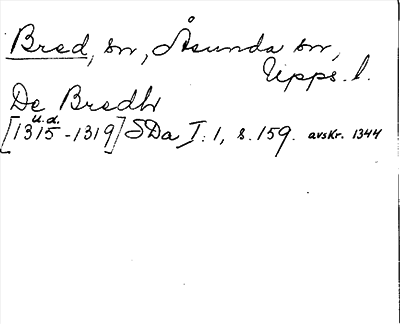 Bred, sn, Åsunda sn,
Upps. l.
De Bredh
u.d.
[1315-1319] SDa I:1, s. 159. avskr. 1344